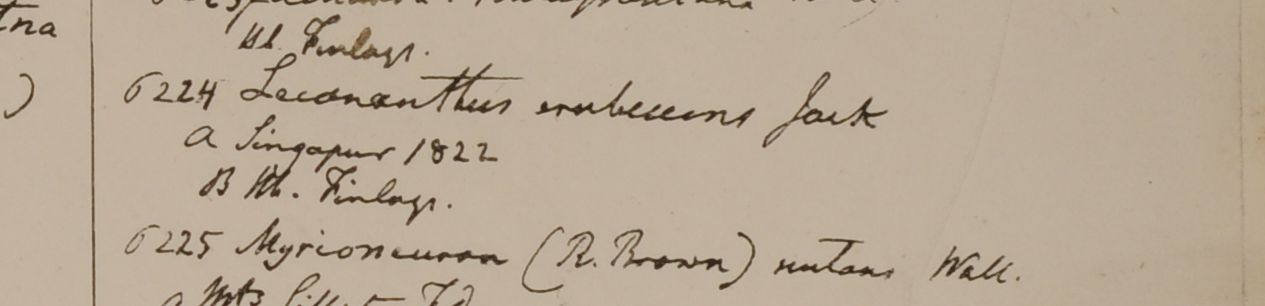 tna
Hb. Finlays.
)
6224 Lecananthus erubescens Jack
a Singapur 1822
B Hb. Finlays.
6225 Myrioneuron (R. Brown) nutans Wall.
a Mts